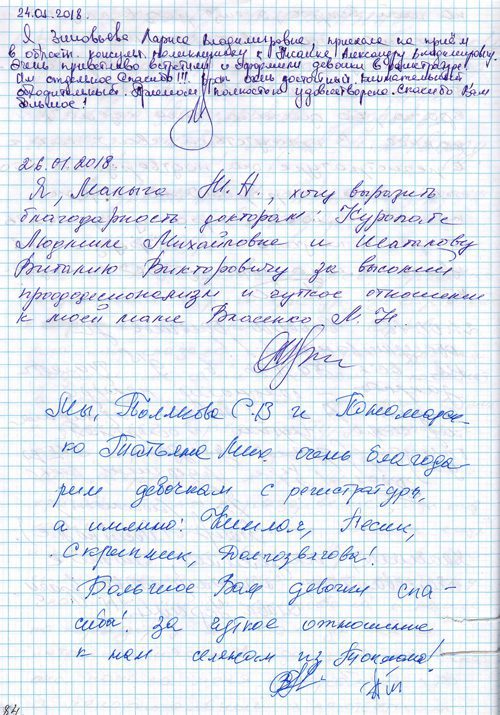 24.01.2018.
Я Зиновьева Лариса Владимировна приехала на приём
в област. консульт. поликлинику к Александру Владимировичу.
Очень приветливо встретили и оформили девочки в регистратуре
Им отдельное Спасибо!!! Врач очень достойный, внимательный
обходительный. Приемом полностью удовлетворена. Спасибо Вам
большое!
26.01.2018.
Я, Малыга Н.А., хочу выразить
благодарность докторам: Куропате
Людмиле Михайловне и Шаталову
Виталию Викторовичу за высокий
профессионализм и чуткое отношение
к моей маме Власенко Л. Н.
Мы, Полякова С.В и Пономарен-
ко Татьяна Мих. очень благода-
рим девочкам с регистратуры,
а именно: Лесик,
Скрипник,
Большое Вам девочки спа-
сибо! за чуткое отношение
к нам селянам из
84